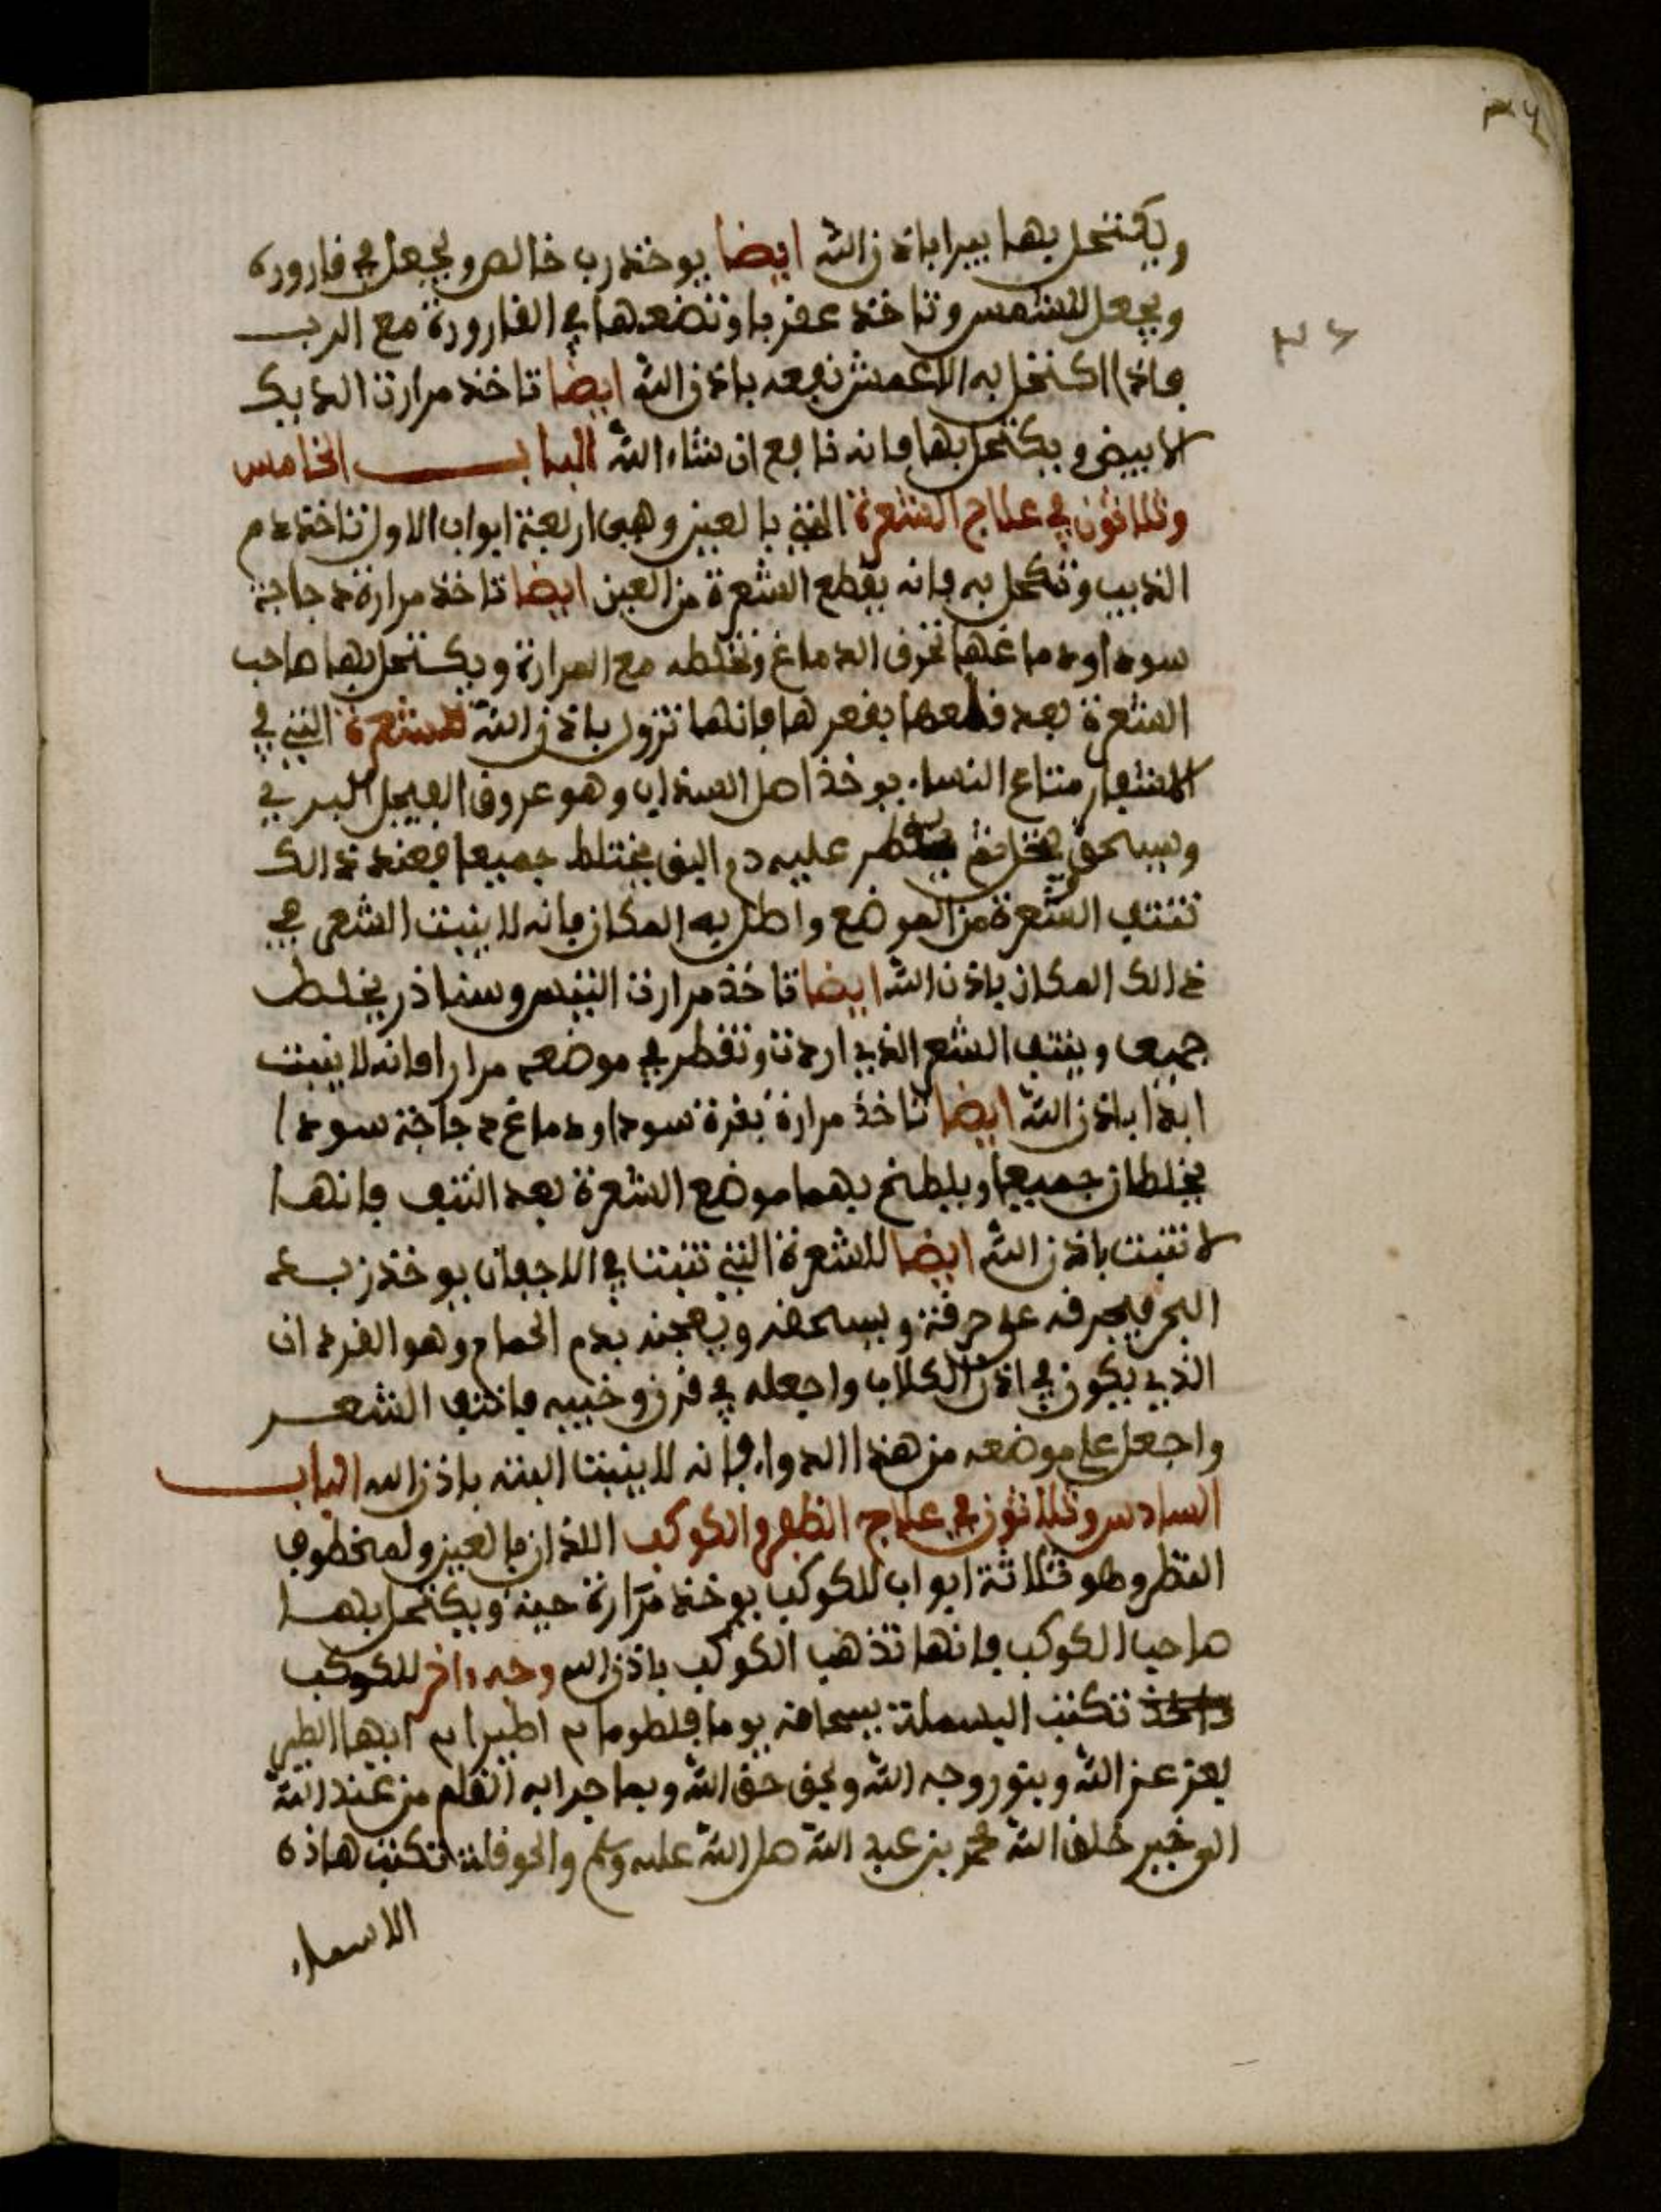 ويكتحل بها يبرا باذن الله ايضا يوخذ رب خالص ويجعل في قارورة
ويجعل للشمس وتاخذ عقربا وتضعها في القارورة مع الرب
فاذا اكتحل به الاعمش نفعه باذن الله ايضا تاخذ مرارت الديك
الابيض ويكتحل بها فانه نافع ان شاء الله الباب الخامس
وثلاثون في علاج الشعرة التي بالعين وهي اربعة ابواب الاول تاخذ دم
الذيب وتكحل به فانه يقطع الشعرة من العين ايضا تاخذ مرارة دجاجة
سودا ودماغها تحرق الدماغ وتخلطه مع المرارة ويكتحل بها صاحب
الشعرة بعد قلعها بقعرها فانها تزول باذن الله للشعرة التي في
الاشفار متاع النساء يوخذ اصل السذاب وهو عروق الفيجل البري
ويسحق ينخل ثم يقطر عليه دم البق يختلط جميعا فعند ذالك
تنتف الشعرة من الموضع واطل به المكان فانه لا ينبت الشعر في
ذالك المكان باذن الله ايضا تاخذ مرارت التيس وسناذر يخلط
جميعا وينتف الشعر الذي اردت وتقطر في موضعه مرارا فانه لا ينبت
ابدا باذن الله ايضا تاخذ مرارة بقرة سودا ودماغ دجاجة سودا
يخلطان جميعا ويلطخ بهما موضع الشعرة بعد النتف فانها
لا تنبت باذن الله ايضا للشعرة التي تنبت في الاجفان يوخذ زبد
البحر فيحرقه على خرقة ويسحقه ويعجنه بدم الحمام وهو القردان
الذي يكون في اذن الكلاب واجعله في قرن وخبيه فانتف الشعر
واجعل على موضعه من هذا الدواء فانه لا ينبت البته باذن الله الباب
السادس وثلاثون في علاج الظفر والكوكب اللذان بالعين ولمخطوف
النظر وهو ثلاثة ابواب للكوكب يوخذ مرارة حية ويكتحل بها
صاحب الكوكب فانها تذهب الكوكب باذن الله وجه ءاخر للكوكب
تكتب البسملة ايها الطير
بعز عز الله وبنور وجه الله وبحق حق الله وبما جرا به القلم من عند الله
الى خير خلق الله محمد بن عبد الله صلى الله عليه وسلم والحوقلة تكتب هاذه
الاسماء